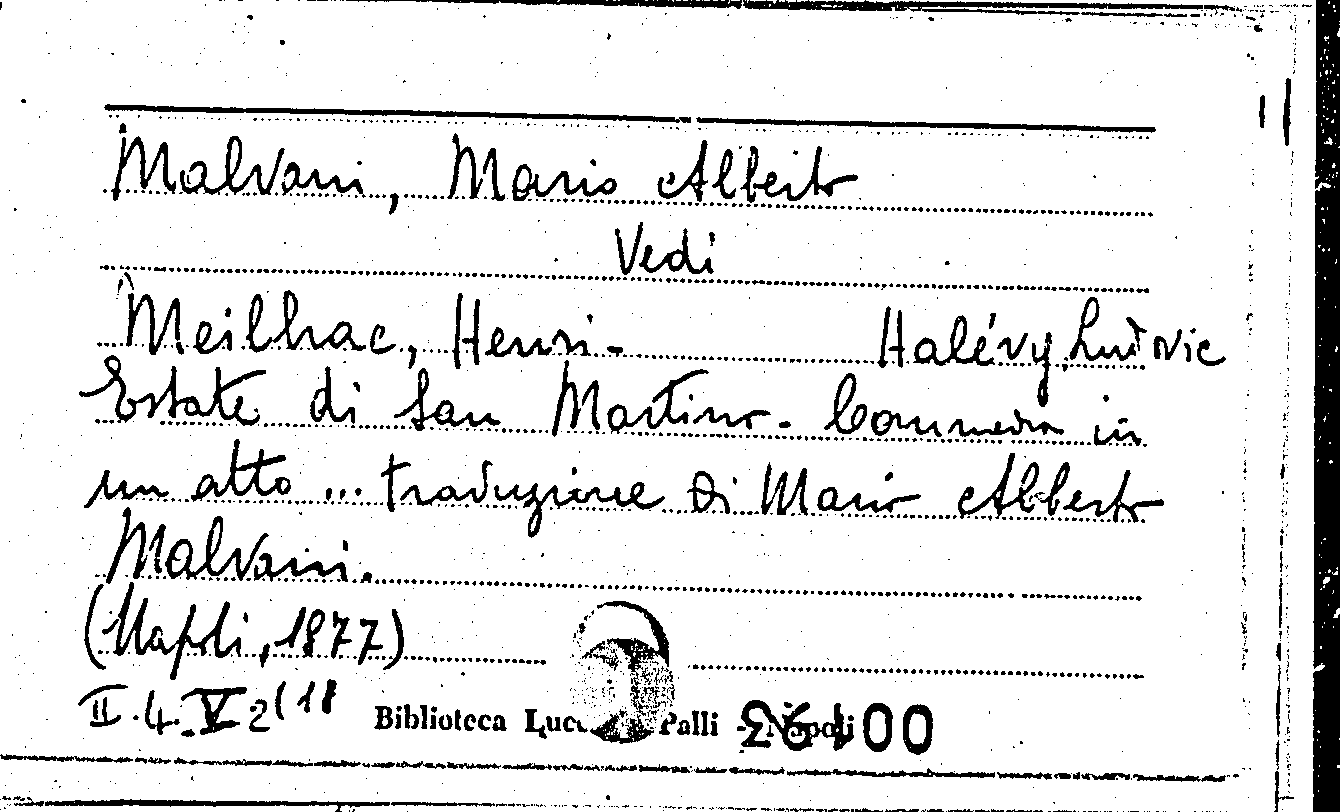 Malvani, Mario Alberto
Vedi
Meilhac, Henri- Halévy, Ludovic
Estate di San Martino. Commedia in
un atto ... traduzione di Mario Alberto
Malvani.
(Napoli, 1877)
II.4.V2(18
Biblioteca Palli - Napoli